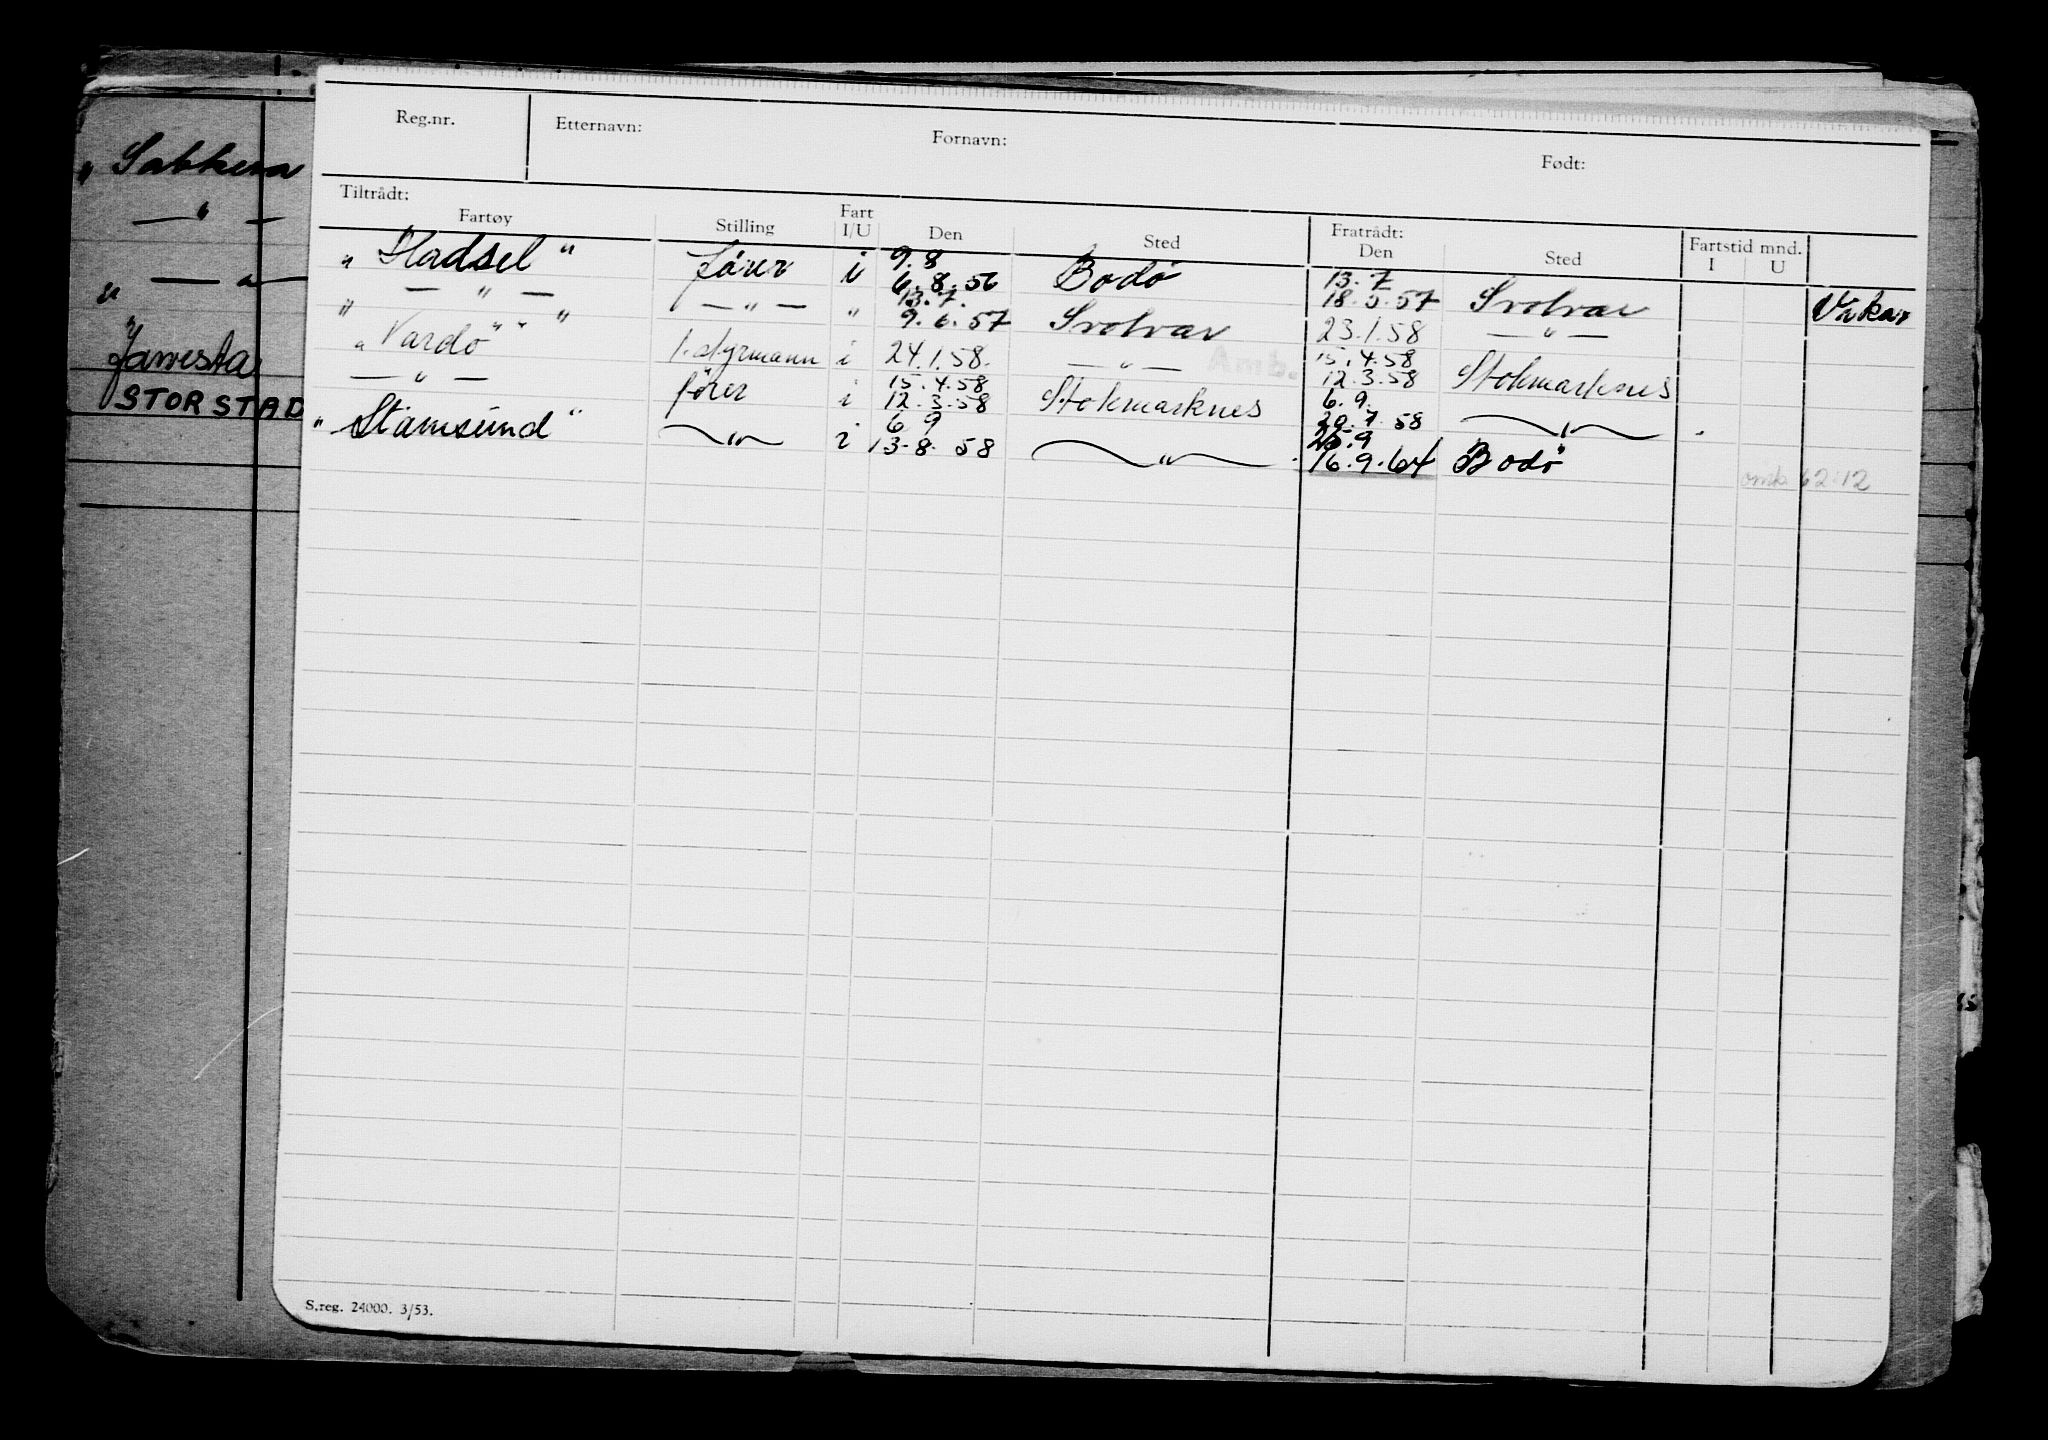 Reg.nr. Etternavn: Fornavn: Født:
Tiltrådt: Fratrådt: Fartstid mnd.
Fartøy Stilling Fart I/U Den Sted Den Sted I U
" Hadsel " fører i 9.8 6.8.56 Bodø 13.7 18.5.57 Svolvær Vikar
" — " — " — " — " 13.7. 9.6.57 Svolvær 23.1.58 — " —
" Vardø " 1. styrmann i 24.1.58. — " — 15.4.58 12.3.58 Stokmarknes
— " — fører i 15.4.58 12.3.58 Stokmarknes 6.9. 20.7.58 — " —
" Stamsund " — " — i 6.9 13.8.58 — " — 25.9 16.9.64 Bodø
omk. 62:12
Amb.
— " —
" — " —
Jawesta
STORSTAD
S.reg. 24000. 3/53.